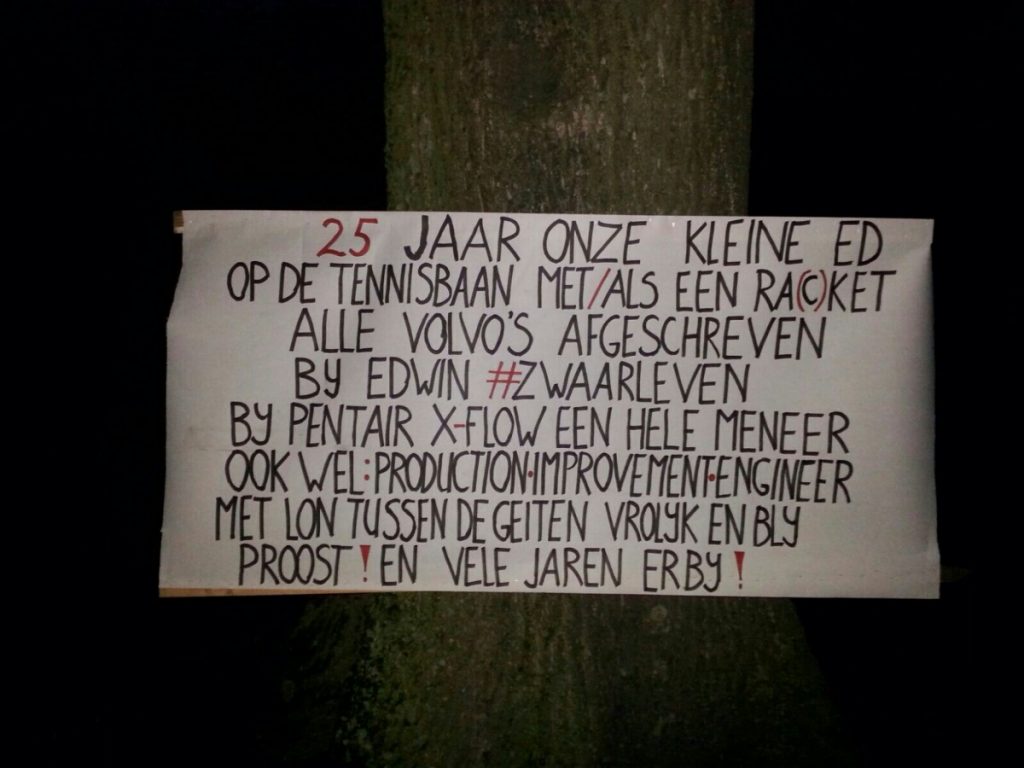 25 JAAR ONZE KLEINE ED
OP DE TENNISBAAN MET/ALS EEN RA(C)KET
ALLE VOLVO'S AFGESCHREVEN
BY EDWIN #ZWAARLEVEN
BY PENTAIR X-FLOW EEN HELE MENEER
OOK WEL:PRODUCTION·IMPROVEMENT·ENGINEER
MET LON TUSSEN DE GEITEN VROLYK EN BLY
PROOST! EN VELE JAREN ERBY!